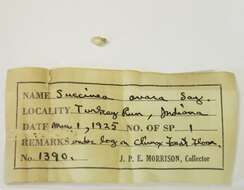 NAME Succinea avara Say.
LOCALITY Turkey Run, Indiana
DATE May 1, 1925 NO. OF SP 1
REMARKS under log on forest floor.
No. 1390. J. P. E. MORRISON, Collector